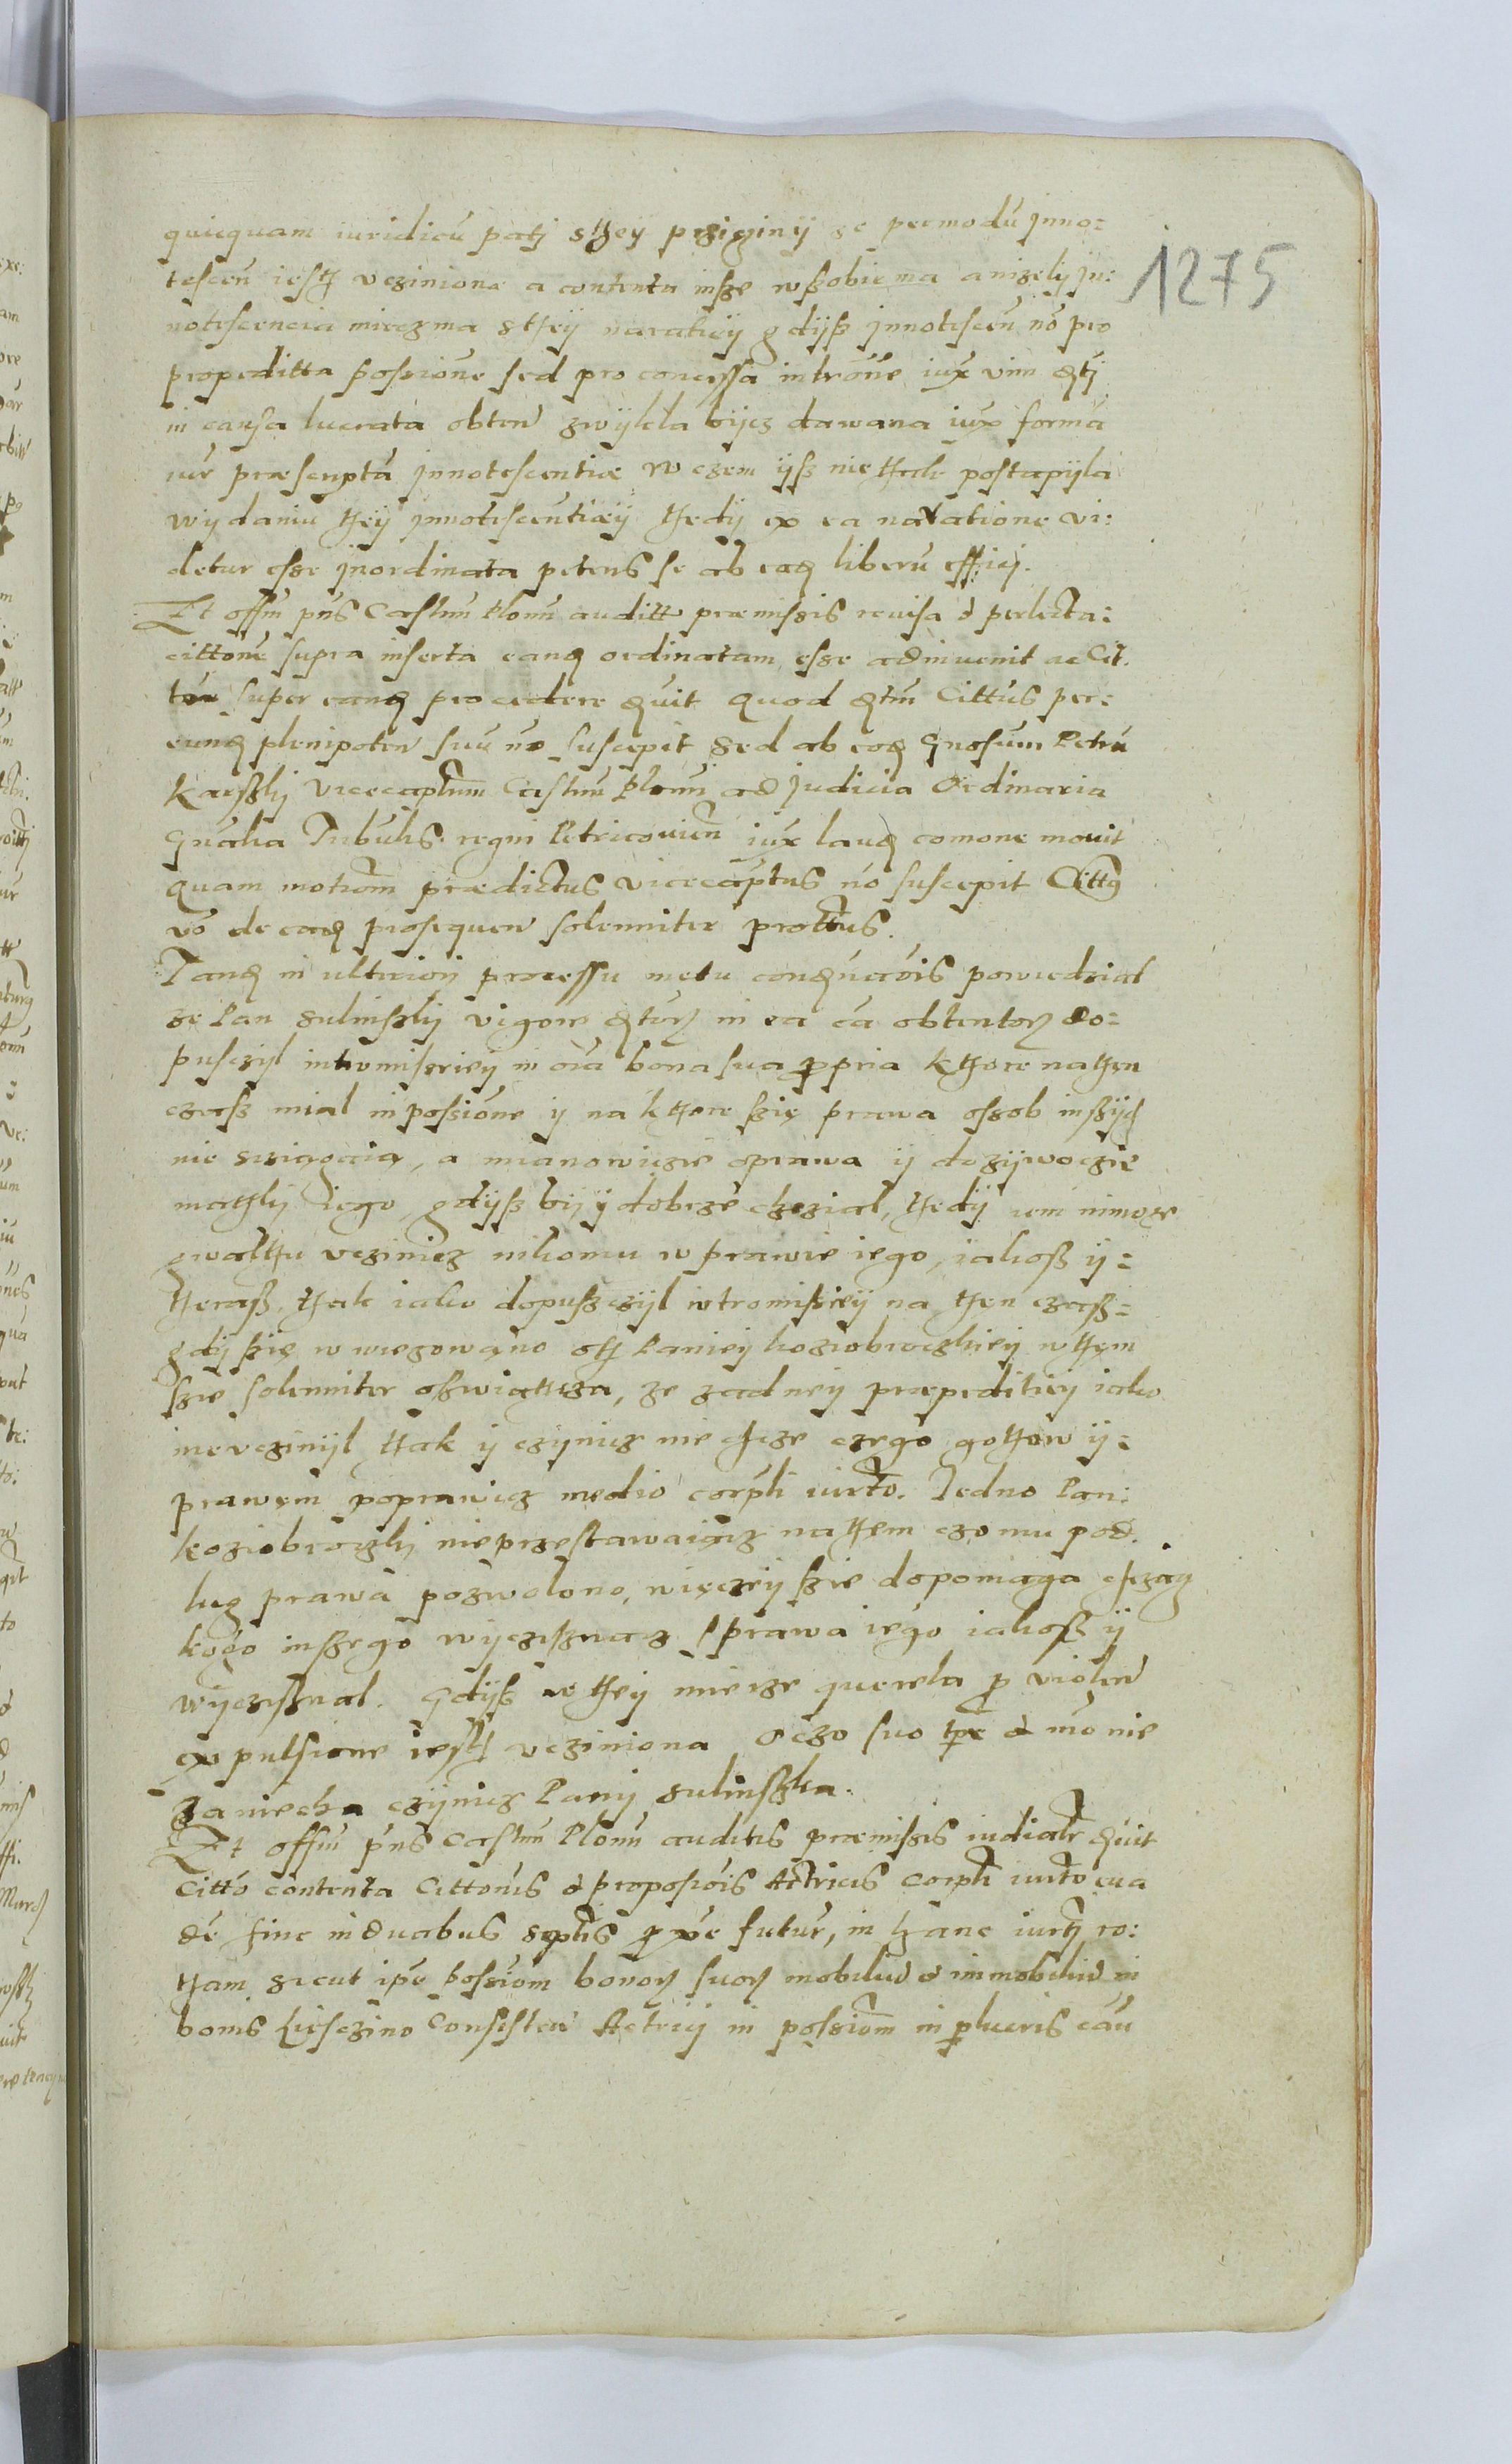 quicquam iuridicū patj sthey prziginÿ se per modū Inno=
tescen̄ iesth vcziniona a contenta insze w ssobie ma anizelÿ In:
notescencia miecz ma sthÿ naratieÿ gdÿsz Innotescen̄ nō pro
propeditta possione sed pro concessa intrōne iux vim
in causa lucrata obten̄ zwÿkla bÿcz dawana iux formā
iur præscriptā Innotescentiæ w czem ÿsz nie thak postapÿla
wÿdaniu theÿ Innotescentieÿ thedÿ ex ea naratione vi:
detur esse Inordinata petens se ab ead liberū effici.
Et offm pns Castrm Plonn auditt præmissis revisa & perlecta:
cittone supra inserta eand ordinatam esse adinuenit ac Cit.
super eand procedere quod Cittus per:
eund plenipoten̄ suū nō suscepit Sed ab eod Gnosum Petrū
vicecaptnm Castrm Plonn ad Judicia Ordinaria
Gnalia Tribulis regni Petricouien̄ iux laud comone mouit
quam motionm prædictus vicecaptus nō suscepit Citts
vō de ead prosequen̄ solenniter prottus.
Tand in ulteriorj processu metu powiedzial
ze Pan Sulinskÿ vigore in ea cā obtentorz do=
pusczÿl intromissieÿ in oīa bona sua propria kthore nathen
czass mial in possione ÿ na kthore ssię prawa ossob inssÿch
nie sciągaią, a mianowiczie oprawa ÿ dozÿwoczie
mathkÿ iego, gdÿsz bÿ ÿ dobrze chczial, thedÿ iem nimoze
gwalthu vczinicz nikomu w prawie iego, iakoss ÿ=
therass, thak iako dopusczÿl intromissieÿ na then czass=
gdÿ ssię w wiezowano oth Panieÿ koziobroczkieÿ w thym
ssie solenniter oswiathcza, ze zadneÿ præpeditieÿ iako
nievczinÿl thak ÿ czÿnicz nie chcze czego gothow ÿ=
prawem poprawicz medio corpli iurto. Jedno Pan:
koziobroczkÿ nieprzestawaiącz nathem czo mu pod.
lug prawa pozwolono, więczeÿ ssie dopomaga chcząc
kogo inszego wÿczisznacz s prawa iego iakoss ÿ
wÿczisznal. Gdÿsz w theÿ mierze querela p violen̄
expulsione iesth vcziniona O czo suo tpe & mō nie
zaniecha czÿnicz Panÿ Sulinska.
Et offm pns Castrm Plonn auditis præmissis iudialr
Cittō contenta Cittonis & propositōis Actricis corpli iurto
dē sine in duabus septis pxe futur, in hanc iurtj ro:
tham sicut ipe possiom bonorz suorz mobiliū & immobiliū in
bonis Kiesczino Consisten̄ Actricj in possiom in plucris cau
1275